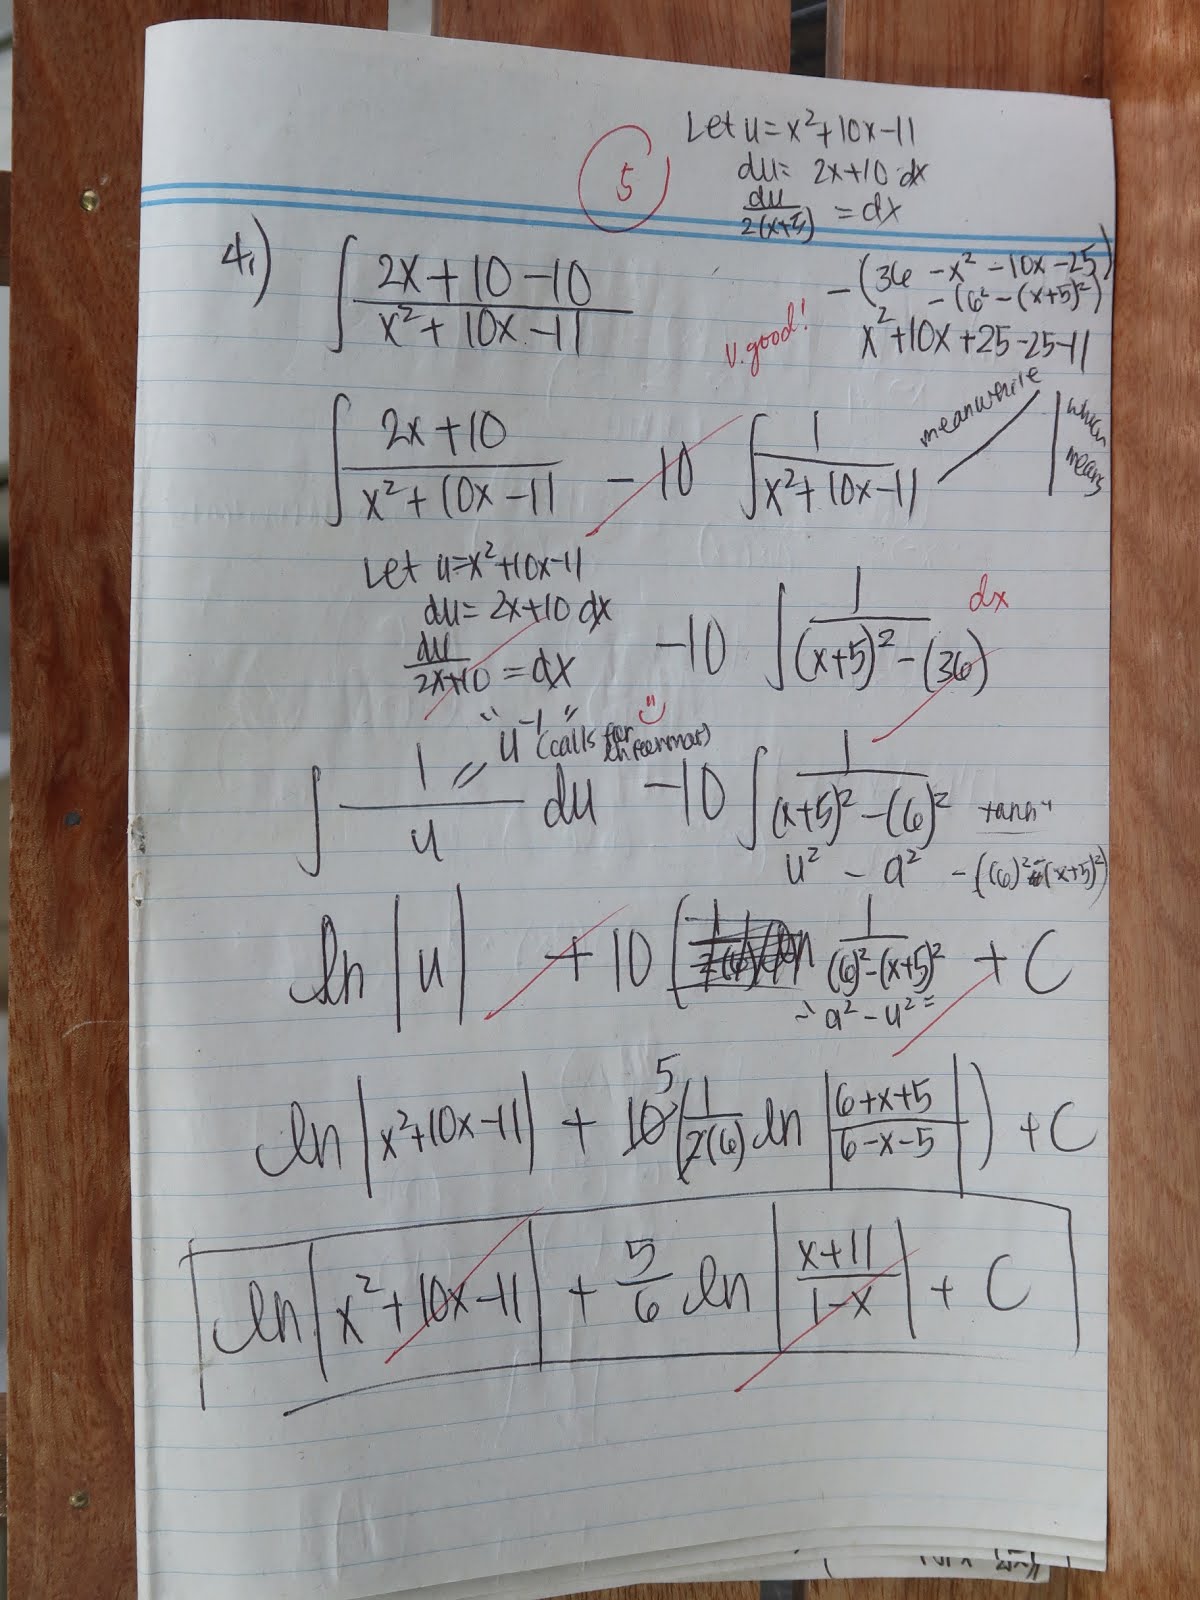 Let u = x²+10x-11
du = 2x+10 dx
du/2(x+5) = dx
5
4.) ∫ 2x+10-10 / x²+10x-11
-(36 -x² -10x-25)
-(6² -(x+5)²)
x²+10x+25-25-11
v. good!
∫ 2x+10 / x²+10x-11 - 10 ∫ 1 / x²+10x-11
meanwhile
which means
Let u=x²+10x-11
du = 2x+10 dx
du/2x+10 = dx
-10 ∫ 1 / (x+5)² - (36) dx
"u⁻¹" (calls for
∫ 1/u du -10 ∫ 1 / (x+5)² - (6)²
u² - a² -((6)² - (x+5)²)
ln |u| + 10 [ 1 / (6)² - (x+5)² + C
a² - u² =
ln |x²+10x-11| + 10 5 (1/2(6) ln |6+x+5 / 6-x-5|) + C
ln |x²+10x-11| + 5/6 ln |x+11 / 1-x| + C